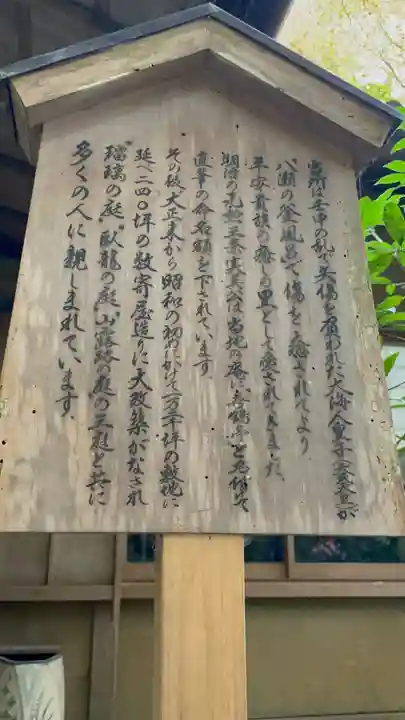 当所は壬申の乱で矢傷を負われた大海人皇子(天武天皇)が
八瀬の釜風呂で傷を癒されてより
平安貴族の癒しの里として愛されてきました。
明治の元勲三条実美公は当地の庵に喜鶴亭と名付けて
直筆の命名額を下されています。
その後、大正末から昭和の初めにかけて一万二千坪の敷地に
延べ二四〇坪の数寄屋造りに大改築がなされ
"瑠璃の庭"臥龍の庭"山露路の庭の三庭と共に
多くの人に親しまれています。